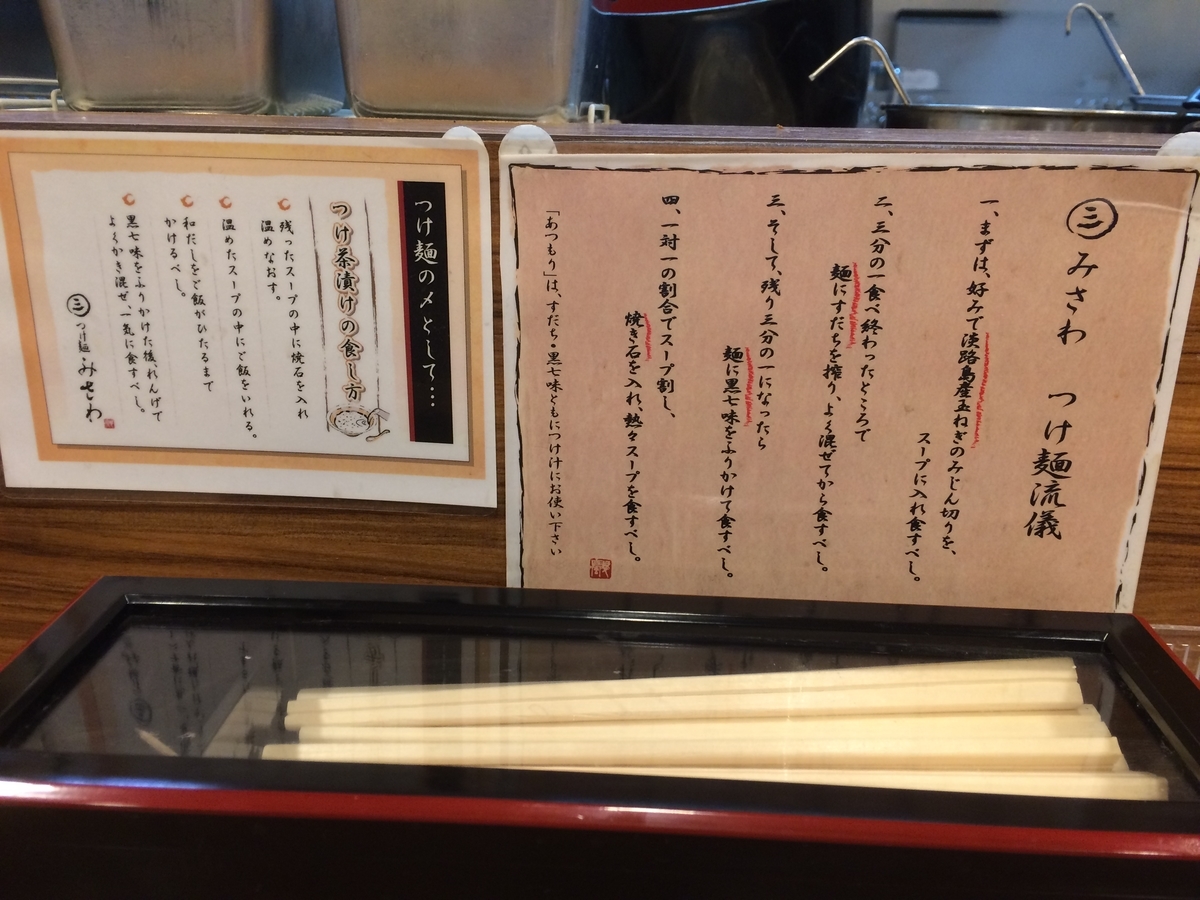 ㊂みさわ つけ麺流儀
一、まずは、好みで淡路島産玉ねぎのみじん切りを、
スープに入れ食すべし。
二、三分の一食べ終わったところで
麺にすだちを搾り、よく混ぜてから食すべし。
三、そして、残り三分の一になったら
麺に黒七味をふりかけて食すべし。
四、一対一の割合でスープ割し、
焼き石を入れ、熱々スープを食すべし。
「あつもり」は、すだち・黒七味ともにつけ汁にお使い下さい
つけ麺の〆として…
つけ茶漬けの食し方
残ったスープの中に焼石を入れ
温めなおす。
温めたスープの中にご飯をいれる。
和だしをご飯がひたるまで
かけるべし。
黒七味をふりかけた後、れんげで
よくかき混ぜ、一気に食すべし。
㊂つけ麺みさわ